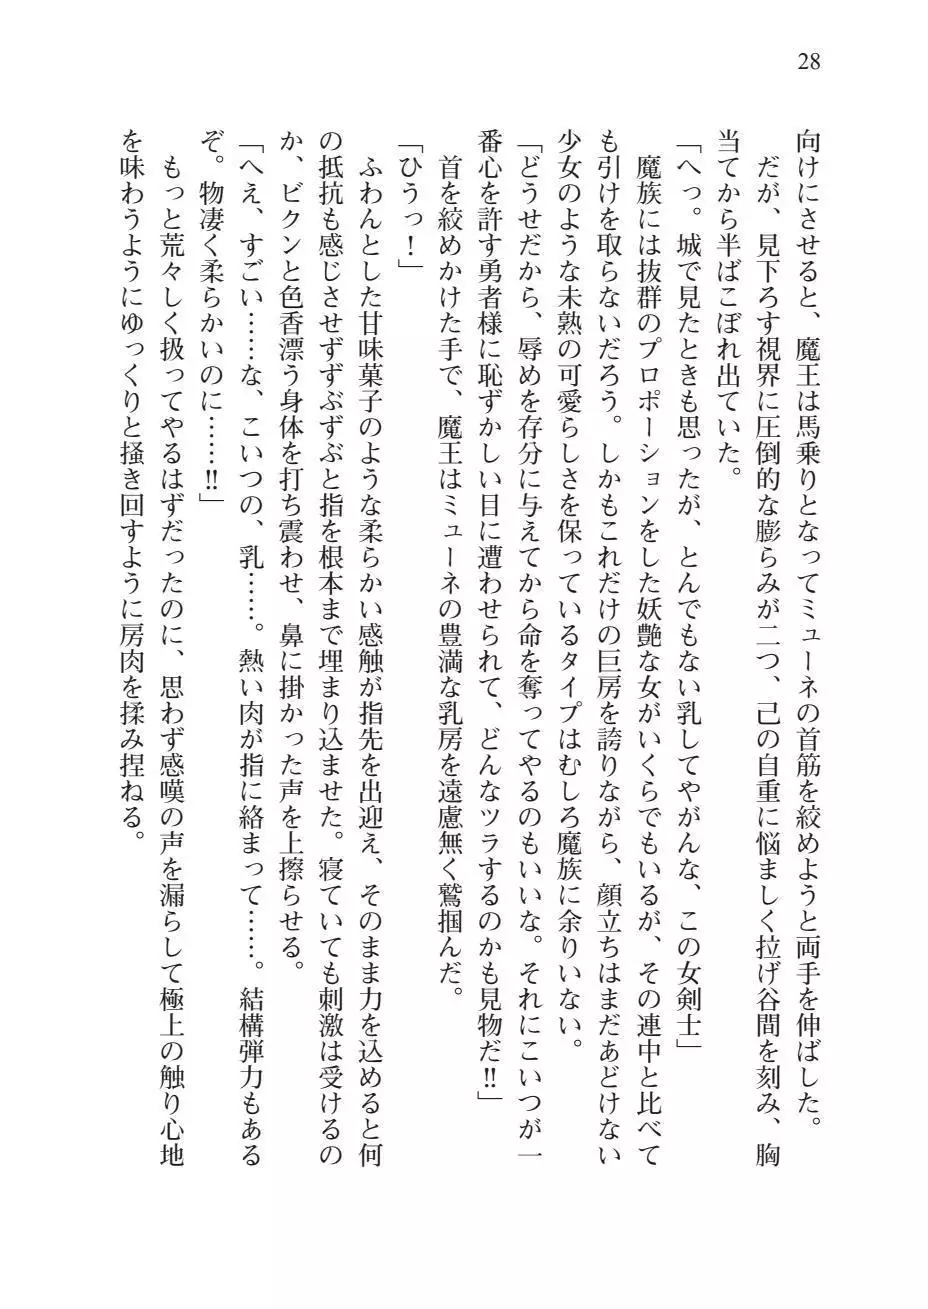 28
向けにさせると、魔王は馬乗りとなってミューネの首筋を絞めようと両手を伸ばした。
だが、見下ろす視界に圧倒的な膨らみが二つ、己の自重に悩ましく拉げ谷間を刻み、胸
当てから半ばこぼれ出ていた。
「へっ。城で見たときも思ったが、とんでもない乳してやがんな、この女剣士」
魔族には抜群のプロポーションをした妖艶な女がいくらでもいるが、その連中と比べて
も引けを取らないだろう。しかもこれだけの巨房を誇りながら、顔立ちはまだあどけない
少女のような未熟の可愛らしさを保っているタイプはむしろ魔族に余りいない。
「どうせだから、辱めを存分に与えてから命を奪ってやるのもいいな。それにこいつが一
番心を許す勇者様に恥ずかしい目に遭わせられて、どんなツラするのかも見物だ‼」
首を絞めかけた手で、魔王はミューネの豊満な乳房を遠慮無く鷲掴んだ。
「ひうっ！」
ふわんとした甘味菓子のような柔らかい感触が指先を出迎え、そのまま力を込めると何
の抵抗も感じさせずずぶずぶと指を根本まで埋まり込ませた。寝ていても刺激は受けるの
か、ビクンと色香漂う身体を打ち震わせ、鼻に掛かった声を上擦らせる。
「へえ、すごい……な、こいつの、乳……。熱い肉が指に絡まって……。結構弾力もある
ぞ。物凄く柔らかいのに……‼」
もっと荒々しく扱ってやるはずだったのに、思わず感嘆の声を漏らして極上の触り心地
を味わうようにゆっくりと掻き回すように房肉を揉み捏ねる。